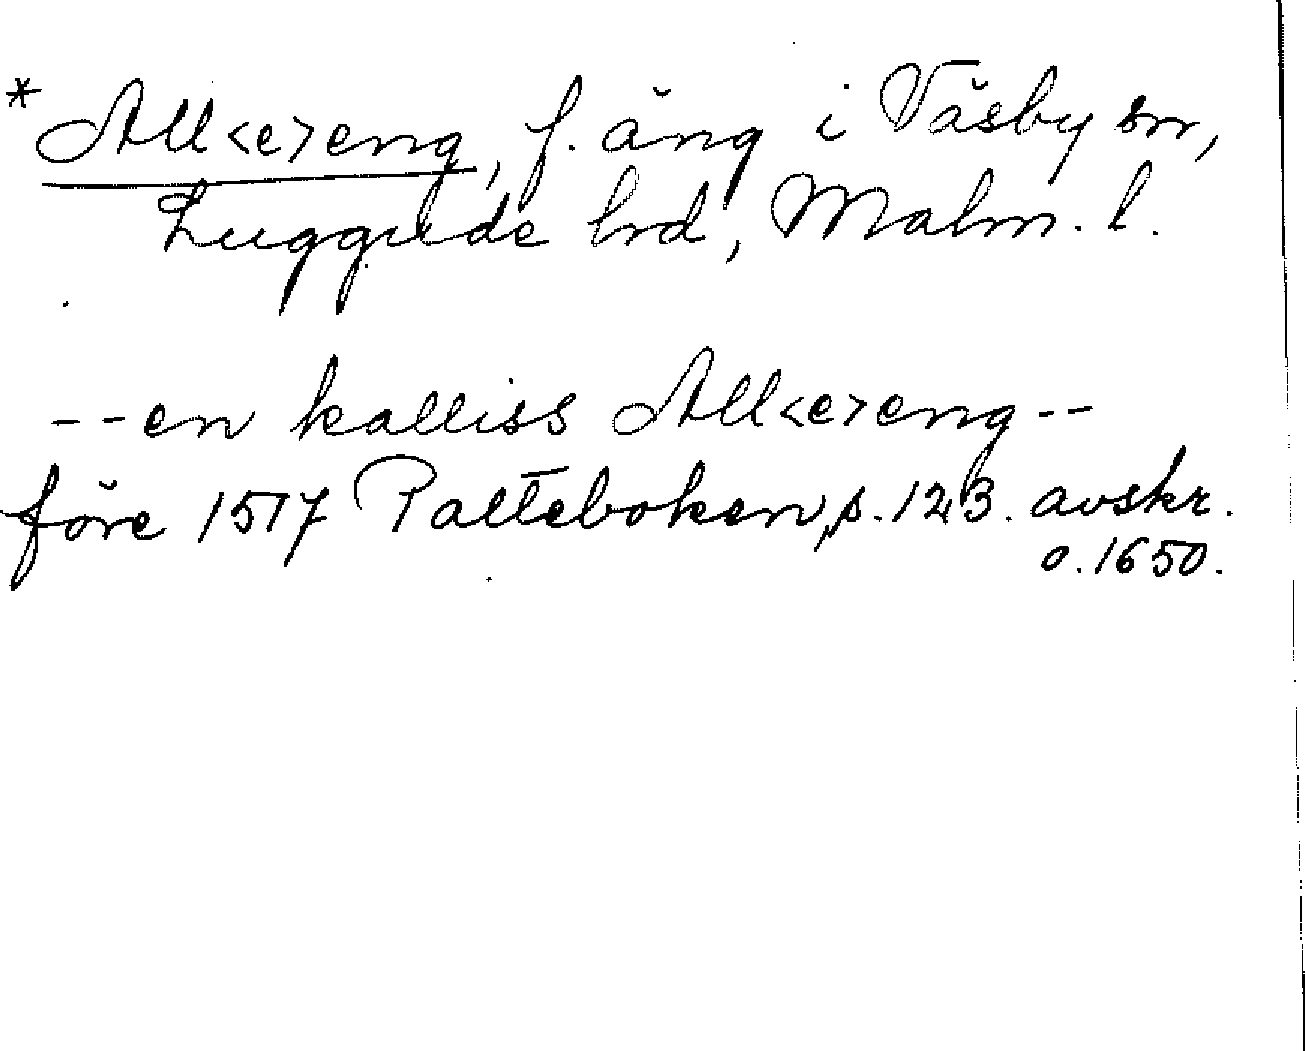 *All<e>eng, f. äng i Väsby sn,
Luggude hrd, Malm. l.
--en kalliss All<e>eng--
före 1517 Palteboken, s. 123. avskr.
o. 1650.